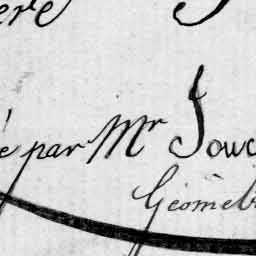 ere
é par Mr Jouv
Géomèt